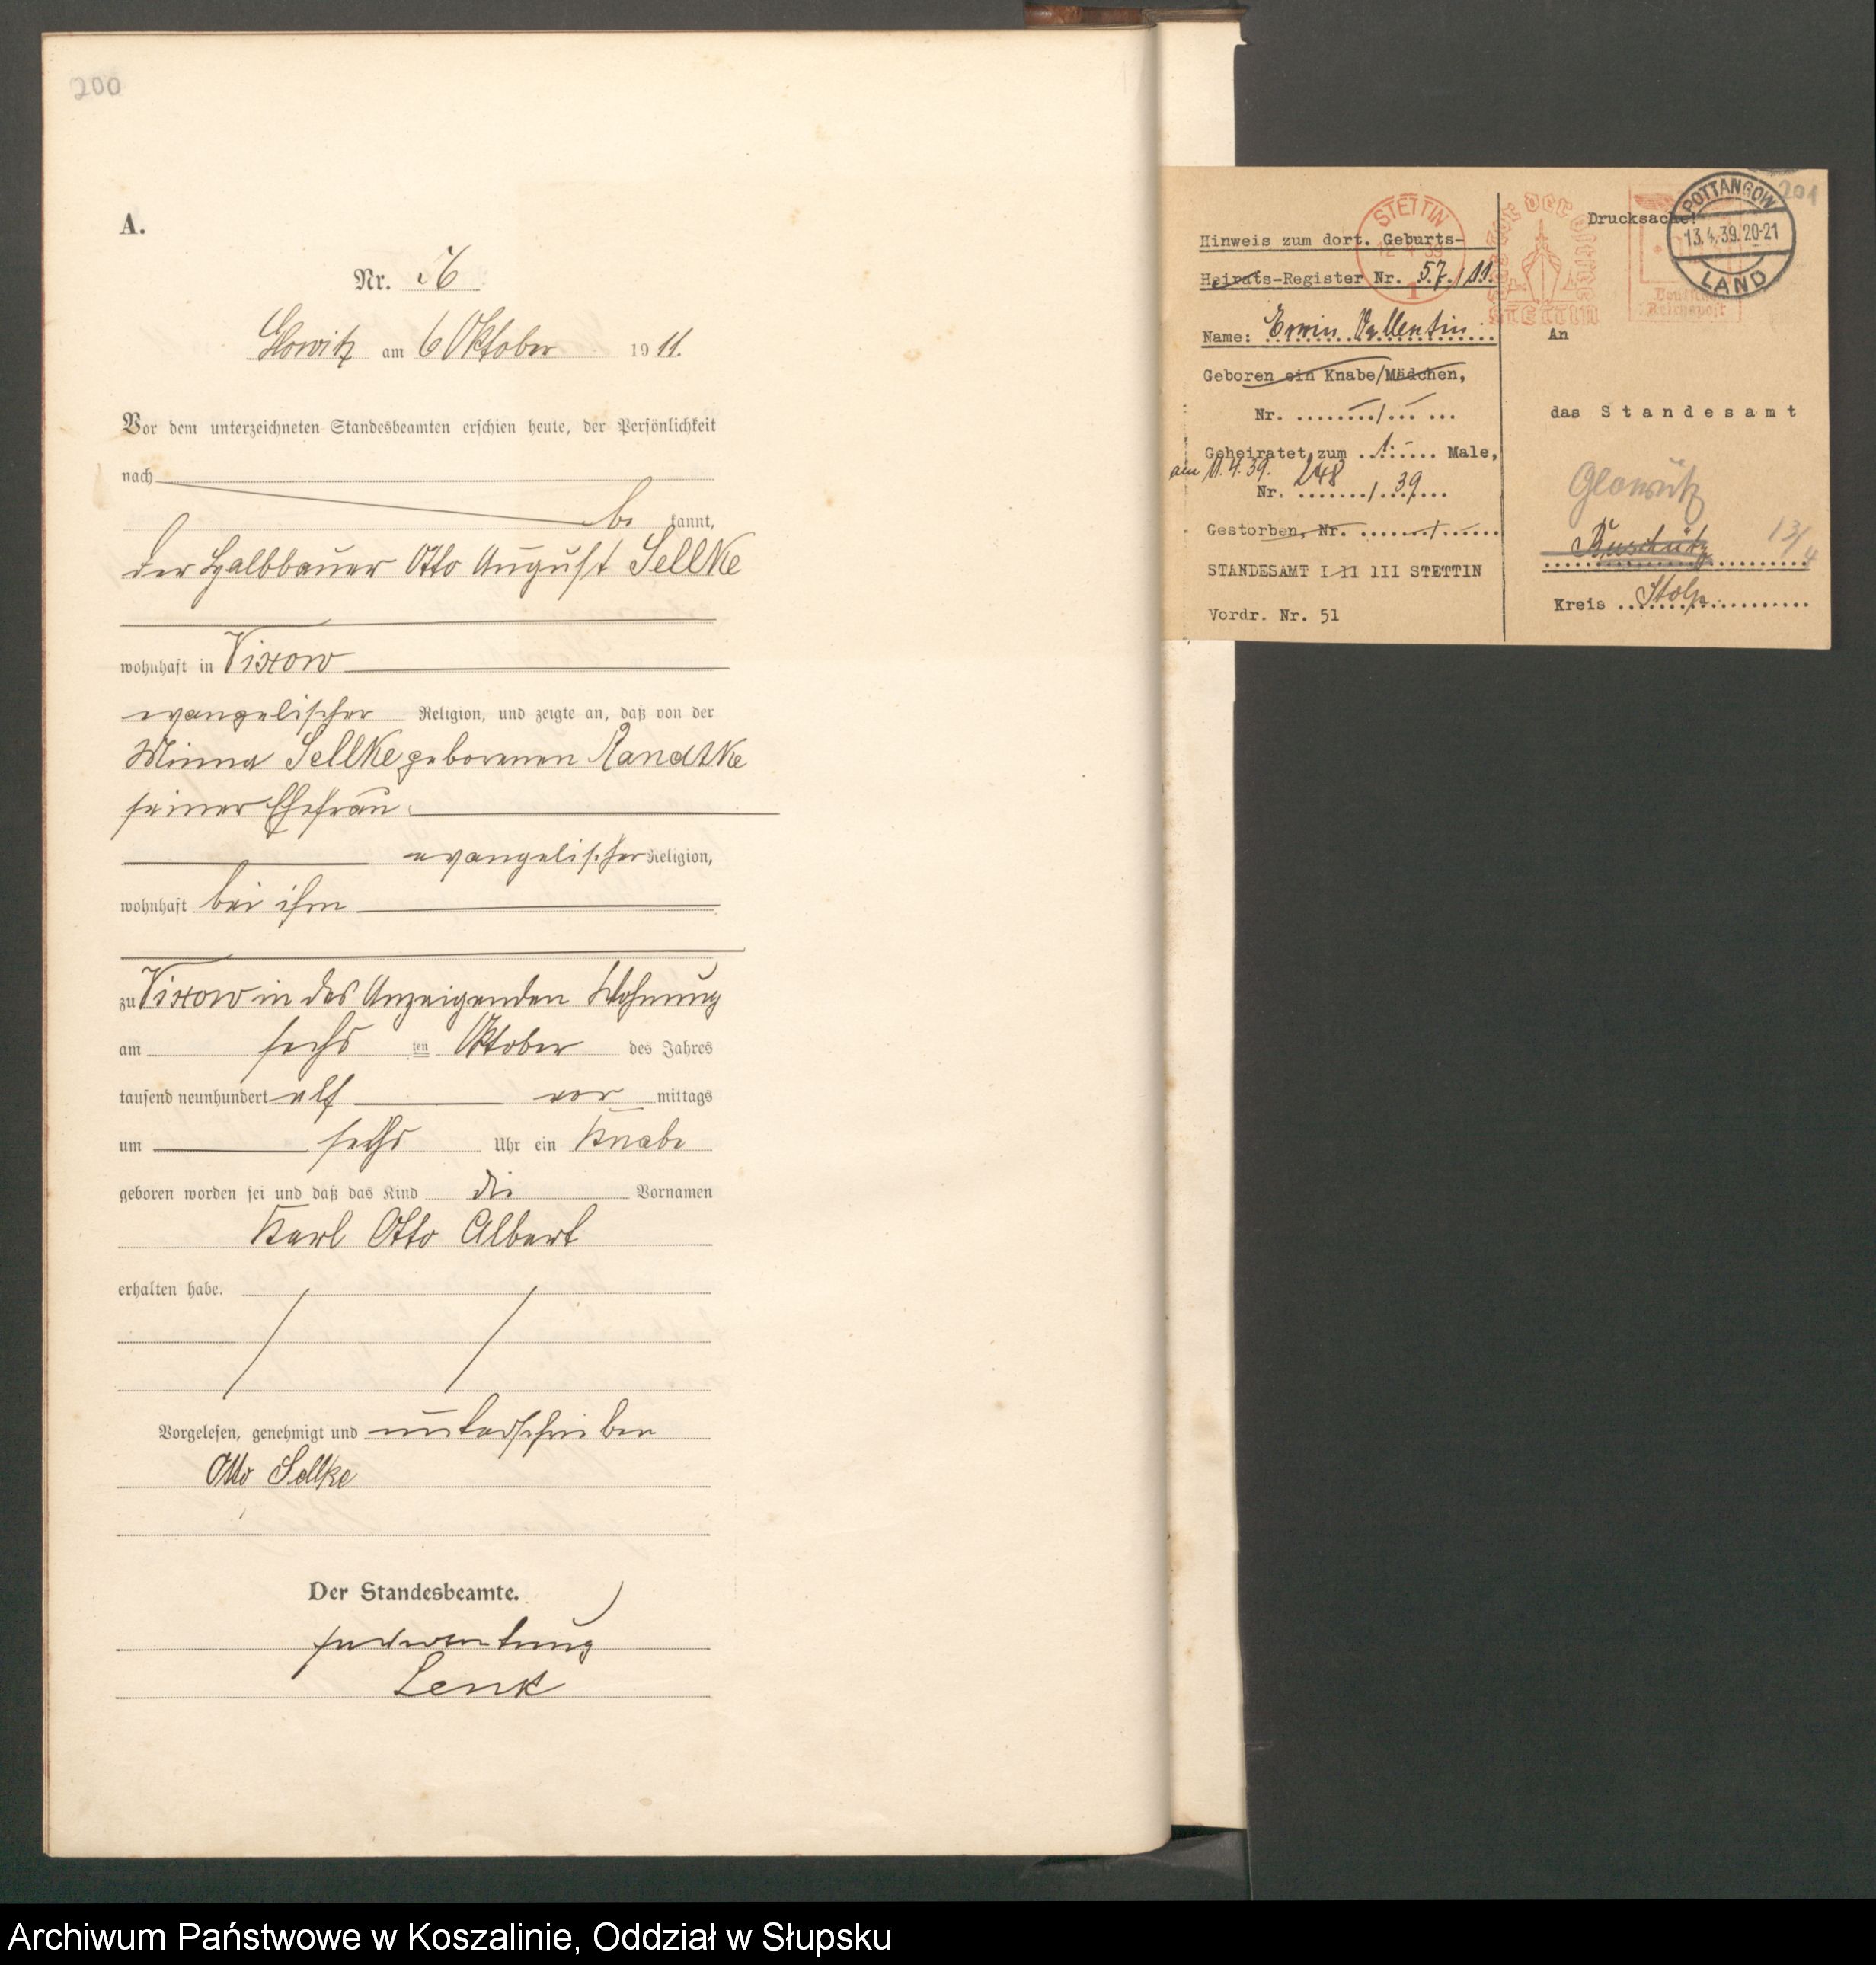 200
A.
Nr. 56
Glowitz am 6 Oktober 1911.
Vor dem unterzeichneten Standesbeamten erschien heute, der Persönlichkeit
nach
be kannt,
der Halbbauer Otto August Sellke
wohnhaft in Vixow
evangelischer Religion, und zeigte an, daß von der
Minna Sellke geborenen Randzke
seiner Ehefrau
evangelischer Religion,
wohnhaft bei ihm
zu Vixow in des Anzeigenden Wohnung
am sechs ten Oktober des Jahres
tausend neunhundert elf vor mittags
um sechs Uhr ein Knabe
geboren worden sei und daß das Kind die Vornamen
Karl Otto Albert
erhalten habe.
Vorgelesen, genehmigt und unterschrieben
Otto Sellke
Der Standesbeamte.
In Vertretung
Lenk
Hinweis zum dort. Geburts-
Heirats-Register Nr. 57/11.
Name: Erwin Vallentin
Geboren ein Knabe/Mädchen,
Nr. ......../... ...
Geheiratet zum 1. Male,
am 11.4.39.
Nr. 248/39
Gestorben, Nr. ......./......
STANDESAMT I II III STETTIN
Vordr. Nr. 51
STETTIN
1
STETTIN
Deutsche
Reichspost
Drucksache!
201
POTTANGOW
13.4.39.20-21
LAND
An
das Standesamt
Glowitz
Ruschütz
13/4
Kreis Stolp
Archiwum Państwowe w Koszalinie, Oddział w Słupsku